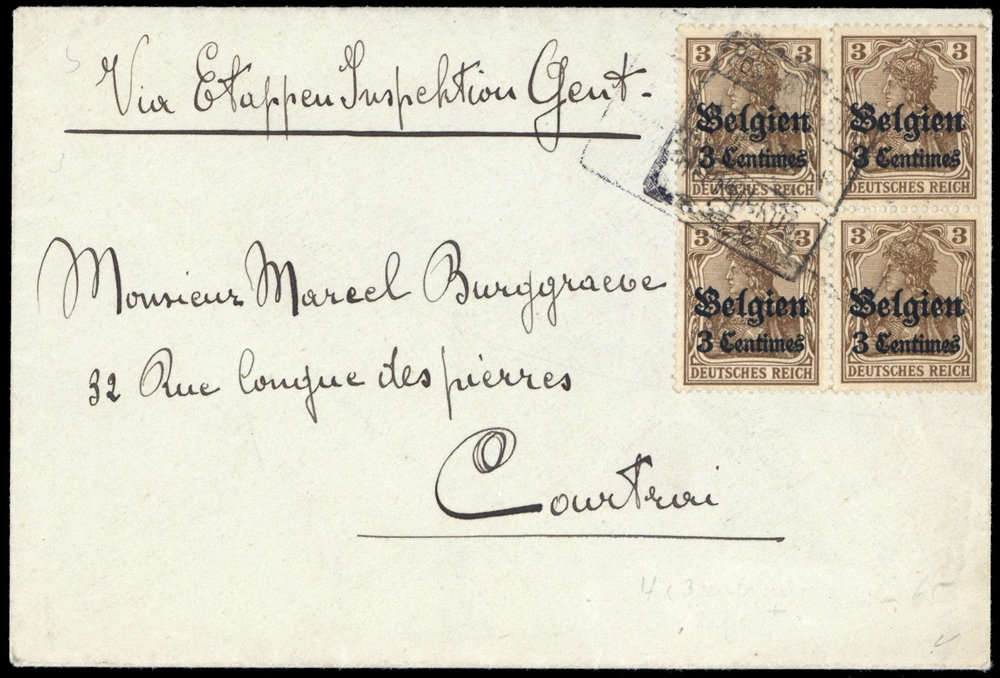 Via Etappen Inspektion Gent.
3 3
Belgien
3 Centimes
DEUTSCHES REICH
3 3
Belgien
3 Centimes
DEUTSCHES REICH
3 3
Belgien
3 Centimes
DEUTSCHES REICH
3 3
Belgien
3 Centimes
DEUTSCHES REICH
Monsieur Marcel Burggraeve
32 Rue longue des pierres
Courtrai